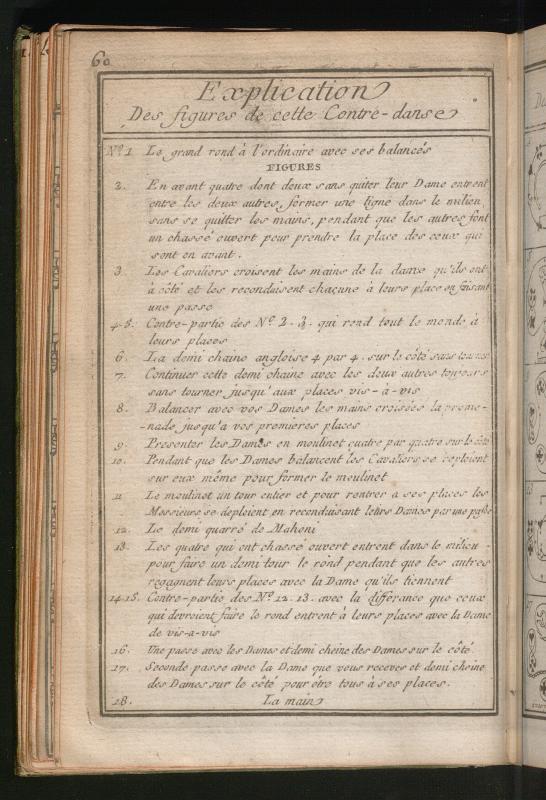 60
Explication
Des figures de cette Contre-danse
Nº. 1 Le grand rond à l'ordinaire avec ses balancés
FIGURES
2. En avant quatre dont deux sans quiter leur Dame entrent
entre les deux autres, former une ligne dans le milieu
sans se quitter les mains, pendant que les autres font
un chassé ouvert pour prendre la place des ceux qui
sont en avant.
3. Les Cavaliers croisent les mains de la dame qu'ils ont
à côté et les reconduisent chacune à leurs place en faisant
une passe
4-5. Contre-partie des Nº. 2. 3. qui rend tout le monde à
leurs places
6. La demi chaine angloise 4 par 4. sur le côté sans tourner
7. Continuer cette demi chaine avec les deux autres toujours
sans tourner jusqu'aux places vis-à-vis
8. Balancer avec vos Dames les mains croisées la prome-
-nade jusqu'a vos premieres places
9. Presenter les Dames en moulinet quatre par quatre sur le côté
10. Pendant que les Dames balancent les Cavaliers se reploient
sur eux même pour former le moulinet
11 Le moulinet un tour entier et pour rentrer a ses places les
Messieurs se deploient en reconduisant leurs Dames par une passe
12. Le demi quarré de Mahoni
13. Les quatre qui ont chassé ouvert entrent dans le milieu
pour faire un demi tour le rond pendant que les autres
regagnent leurs places avec la Dame qu'ils tiennent
14-15. Contre-partie des Nº. 12. 13. avec la différance que ceux
qui devroient faire le rond entrent à leurs places avec la Dame
de vis-a-vis
16. Une passe avec les Dames et demi cheine des Dames sur le côté
17. Seconde passe avec la Dame que vous receves et demi cheine
des Dames sur le côté pour être tous à ses places.
18. La main